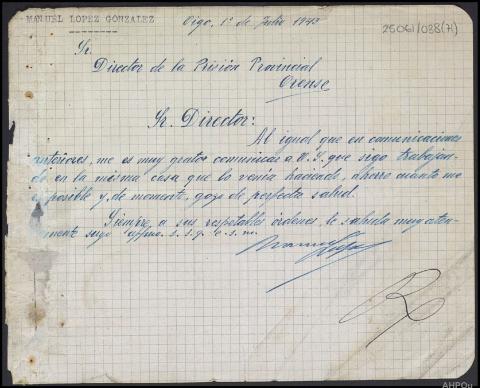 MANUEL LOPEZ GONZALEZ
Vigo, 1º de Julio 1943
25061/038(H)
Sr.
Director de la Prisión Provincial
Orense
Sr. Director:
Al igual que en comunicaciones
anteriores, me es muy grato comunicar a V.S. que sigo trabajan-
do en la misma casa que lo venía haciendo, ahorro cuanto me
es posible y, de momento, gozo de perfecta salud.
Siempre a sus respetables órdenes, le saluda muy aten-
mente suyo affmo. s.s.q.e.s.m.
Manuel López
R
AHPOu